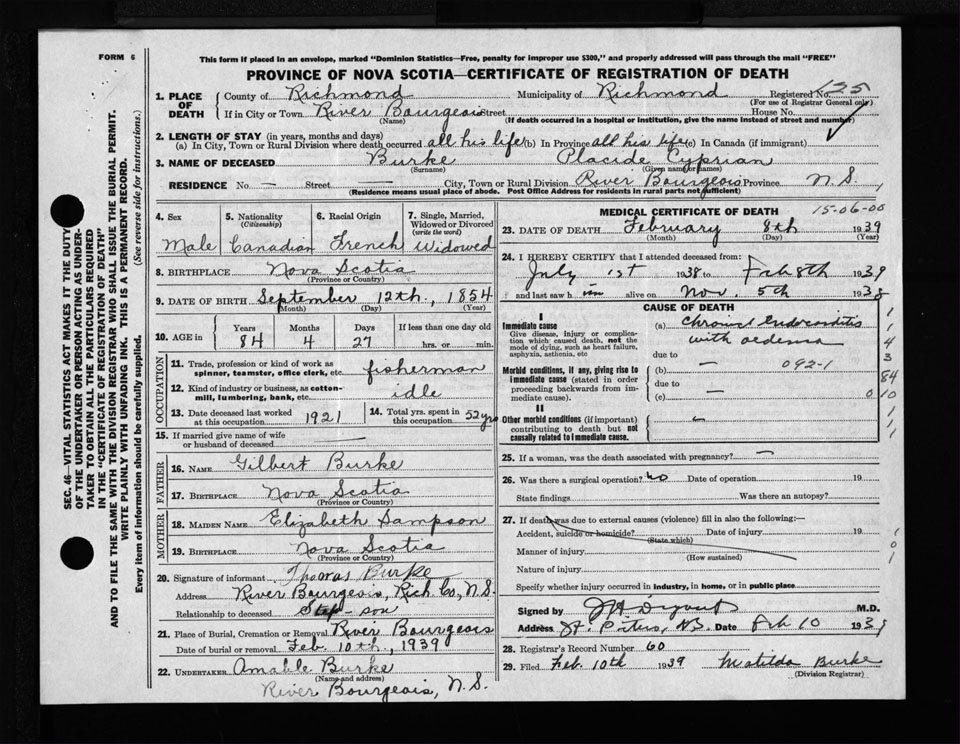 FORM 6
This form if placed in an envelope, marked "Dominion Statistics—Free, penalty for improper use $300," and properly addressed will pass through the mail "FREE"
PROVINCE OF NOVA SCOTIA—CERTIFICATE OF REGISTRATION OF DEATH
SEC. 46—VITAL STATISTICS ACT MAKES IT THE DUTY
OF THE UNDERTAKER OR PERSON ACTING AS UNDER-
TAKER TO OBTAIN ALL THE PARTICULARS REQUIRED
IN THE "CERTIFICATE OF REGISTRATION OF DEATH"
AND TO FILE THE SAME WITH THE DIVISION REGISTRAR WHO SHALL ISSUE THE BURIAL PERMIT.
WRITE PLAINLY WITH UNFADING INK. THIS IS A PERMANENT RECORD.
Every item of information should be carefully supplied. (See reverse side for instructions.)
1. PLACE OF DEATH
County of Richmond Municipality of Richmond Registered No. 125
(For use of Registrar General only)
If in City or Town River Bourgeois Street House No.
(Name) (If death occurred in a hospital or institution, give the name instead of street and number)
2. LENGTH OF STAY (in years, months and days)
(a) In City, Town or Rural Division where death occurred all his life (b) In Province all his life (c) In Canada (if immigrant)
3. NAME OF DECEASED Burke Placide Cyprian
(Surname) (Given name or names)
RESIDENCE No. — Street — City, Town or Rural Division River Bourgeois Province N.S.
(Residence means usual place of abode. Post Office Address for residents in rural parts not sufficient)
4. Sex Male
5. Nationality (Citizenship) Canadian
6. Racial Origin French
7. Single, Married, Widowed or Divorced (write the word) Widowed
8. BIRTHPLACE Nova Scotia
(Province or Country)
9. DATE OF BIRTH September 12th, 1854
(Month) (Day) (Year)
10. AGE in Years 84 Months 4 Days 27 If less than one day old hrs. or min.
OCCUPATION
11. Trade, profession or kind of work as spinner, teamster, office clerk, etc. fisherman
12. Kind of industry or business, as cotton-mill, lumbering, bank, etc. idle
13. Date deceased last worked at this occupation 1921
14. Total yrs. spent in this occupation 52 yrs
15. If married give name of wife or husband of deceased —
FATHER
16. NAME Gilbert Burke
17. BIRTHPLACE Nova Scotia
(Province or Country)
MOTHER
18. MAIDEN NAME Elizabeth Sampson
19. BIRTHPLACE Nova Scotia
(Province or Country)
20. Signature of informant Thomas Burke
Address River Bourgeois, Rich. Co., N.S.
Relationship to deceased Step-son
21. Place of Burial, Cremation or Removal River Bourgeois
Date of burial or removal Feb. 10th, 1939
22. UNDERTAKER Amable Burke
(Name and address)
River Bourgeois, N.S.
MEDICAL CERTIFICATE OF DEATH 15-06-00
23. DATE OF DEATH February 8th 1939
(Month) (Day) (Year)
24. I HEREBY CERTIFY that I attended deceased from:
July 1st 1938 to Feb 8th 1939
and last saw him alive on Nov. 5th 1938
CAUSE OF DEATH
I
Immediate cause
Give disease, injury or complication which caused death, not the mode of dying, such as heart failure, asphyxia, asthenia, etc
(a) Chronic endocarditis
with oedema
due to
Morbid conditions, if any, giving rise to immediate cause (stated in order proceeding backwards from immediate cause).
(b) — 092-1
due to
(c) —
II
Other morbid conditions (if important) contributing to death but not causally related to immediate cause.
1
1
4
3
84
0 10
1
1
1
25. If a woman, was the death associated with pregnancy? —
26. Was there a surgical operation? no Date of operation 19
State findings Was there an autopsy?
27. If death was due to external causes (violence) fill in also the following:—
Accident, suicide or homicide? Date of injury 19
(State which)
Manner of injury
(How sustained)
Nature of injury
Specify whether injury occurred in industry, in home, or in public place
1
0
1
Signed by M.D.
Address St. Peters, N.S. Date Feb 10 1939
28. Registrar's Record Number 60
29. Filed Feb. 10th 1939 Matilda Burke
(Division Registrar)